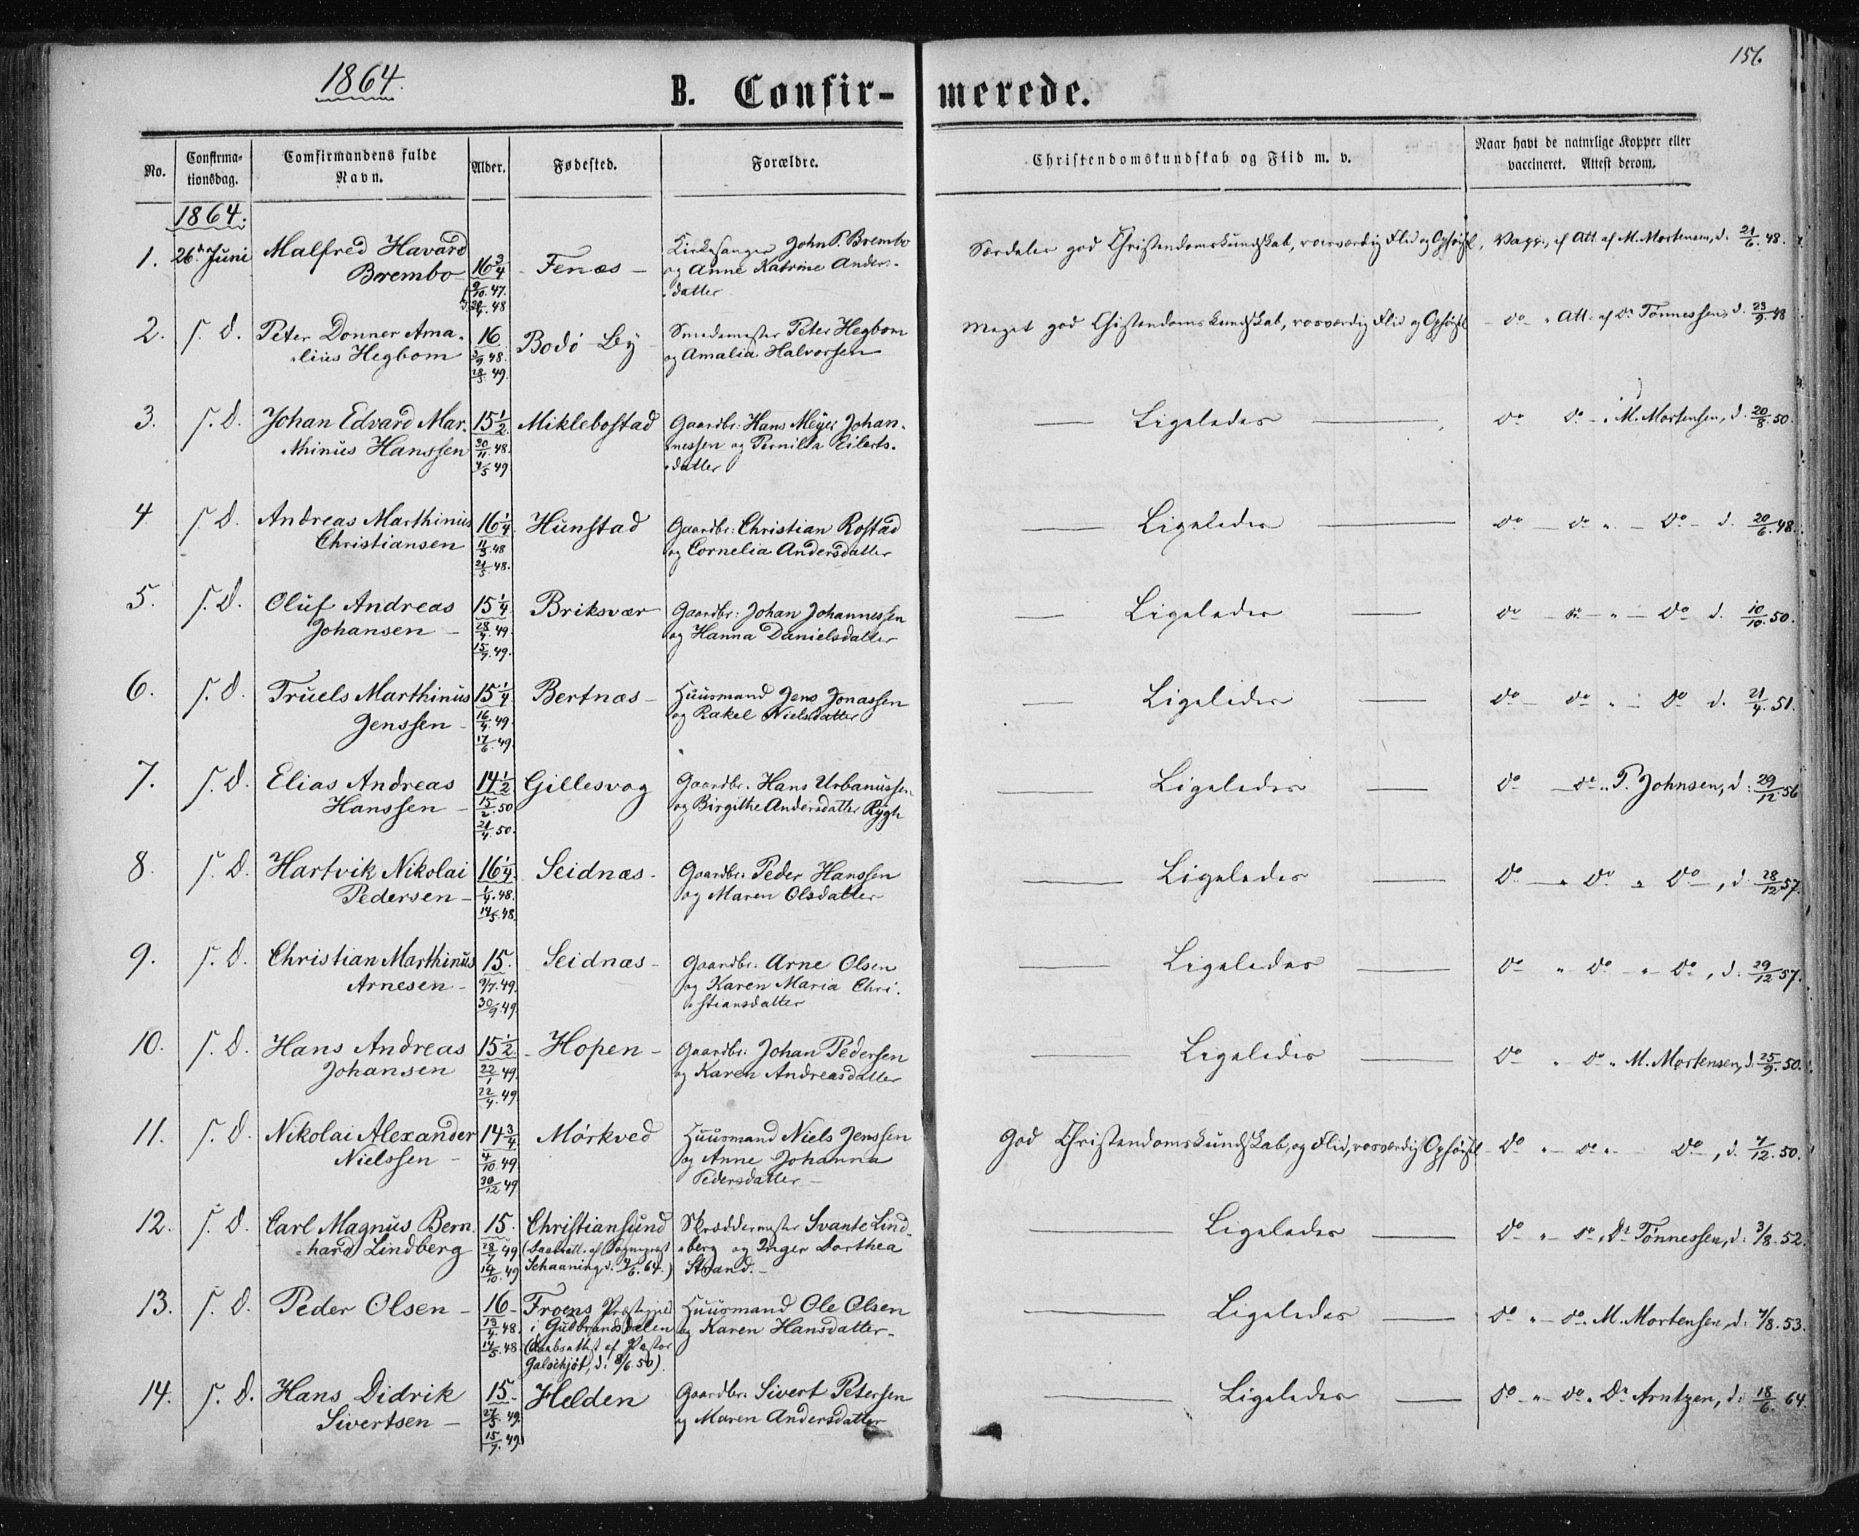 1864.
156
B. Confirmerede.
No.
Confirmationsdag.
Comfirmandens fulde Navn.
Alder.
Fødested.
Forældre.
Christendomskundskab og Flid m. v.
Naar havt de naturlige Kopper eller vaccineret. Attest derom.
1864.
1. 26de Juni Malfred Havard 16 3/4 Fenæs Kirkesanger John P. Brembo Særdeles god Christendomskundskab, rosværdig Flid og Opførsel, Vacc., ef Att. af M. Mortensen, d. 21/6. 48.
Brembo 9/10. 47. og Anne Katrine Anders-
48 datter
2. s. D. Peter Donner Ama- 16 Bodø By Smedemester Peter Hegbom Meget god Christendomskundskab, rosværdig Flid og Opførsel do Att. af Dr Tønnessen, d. 23/9. 48
lius Hegbom 3/9. 48. og Amalia Halvorsen
28/5. 49.
3. s. D. Johan Edvard Mar- 15 1/2 Miklebostad Gaardbr. Hans Meyer Johan- Ligeledes do do M. Mortensen, d. 20/8. 50.
thinus Hanssen 30/11. 48. nessen og Pernilla Eilerts-
4/5. 49 datter
4 s. D. Andreas Marthinus 16 1/4 Hunstad Gaardbr. Christian Rostad Ligeledes do do Do d. 20/6. 48.
Christiansen 11/3. 48 og Cornelia Andersdatter
21/5. 48.
5. s. D. Oluf Andreas 15 1/4 Briksvær Gaardbr. Johan Johannessen Ligeledes do do Do d. 10/10. 50.
Johansen 28/4. 49. og Hanna Danielsdatter
15/7. 49.
6. s. D. Truels Marthinus 15 1/4 Bertnæs Huusmand Jens Jonassen Ligeledes do do Do d. 21/4. 51.
Jenssen 16/4. 49. og Rakel Nielsdatter
17/6. 49.
7. s. D. Elias Andreas 14 1/2 Gillesvog Gaardbr. Hans Urbanussen Ligeledes do do P. Johnsen, d. 29/12 56
Hanssen 15/2. 50 og Birgithe Andersdatter Rygh
21/4. 50.
8. s. D. Hartvik Nikolai 16 1/4 Seidnæs Gaardbr. Peder Hanssen Ligeledes do do Do, d. 28/12 57.
Pedersen 1/4. 48. og Maren Olsdatter
14/5. 48.
9. s. D. Christian Marthinus 15. Seidnæs Gaardbr. Arne Olsen Ligeledes do do Do, d. 29/12 57.
Arnesen 9/7. 49. og Karen Maria Chri-
30/9. 49. stiansdatter
10. s. D. Hans Andreas 15 1/2 Hopen Gaardbr. Johan Pedersen Ligeledes do do M. Mortensen, d. 25/9. 50.
Johansen 22/1 49. og Karen Andreasdatter
22/4. 49
11. s. D. Nikolai Alexander 14 3/4 Mørkved Huusmand Niels Jenssen God Christendomskundskab, og Flid, rosværdig Opførsel do do Do, d. 7/12. 50.
Nielssen 4/10 49 og Anne Johanna
30/12 49 Pedersdatter
12. s. D. Carl Magnus Bern- 15. Christiansund Skræddermester Svante Lind- Ligeledes do do Dr Tønnessen, d. 3/8. 52.
hard Lindberg 28/7 49 (Daabsatt. af Sognepræst berg og Inger Dorthea
14/10. 49 Schaaning, d. 7/6. 64.) Strand.
13. s. D. Peder Olsen 16 Froens Præstegjeld Huusmand Ole Olsen Ligeledes do do M. Mortensen, d. 7/8. 53.
19/4. 48. i Gudbrandsdalen og Karen Hansdatter
14/5. 48 (Daabsattest af Pastor
Galschjøt, d. 8/6. 50).
14. s. D. Hans Didrik 15 Helden Gaardbr. Sivert Petersen Ligeledes do do Dr Arntzen, d. 18/6. 64.
Sivertsen 27/3. 49. og Maren Andersdatter
15/7. 49.